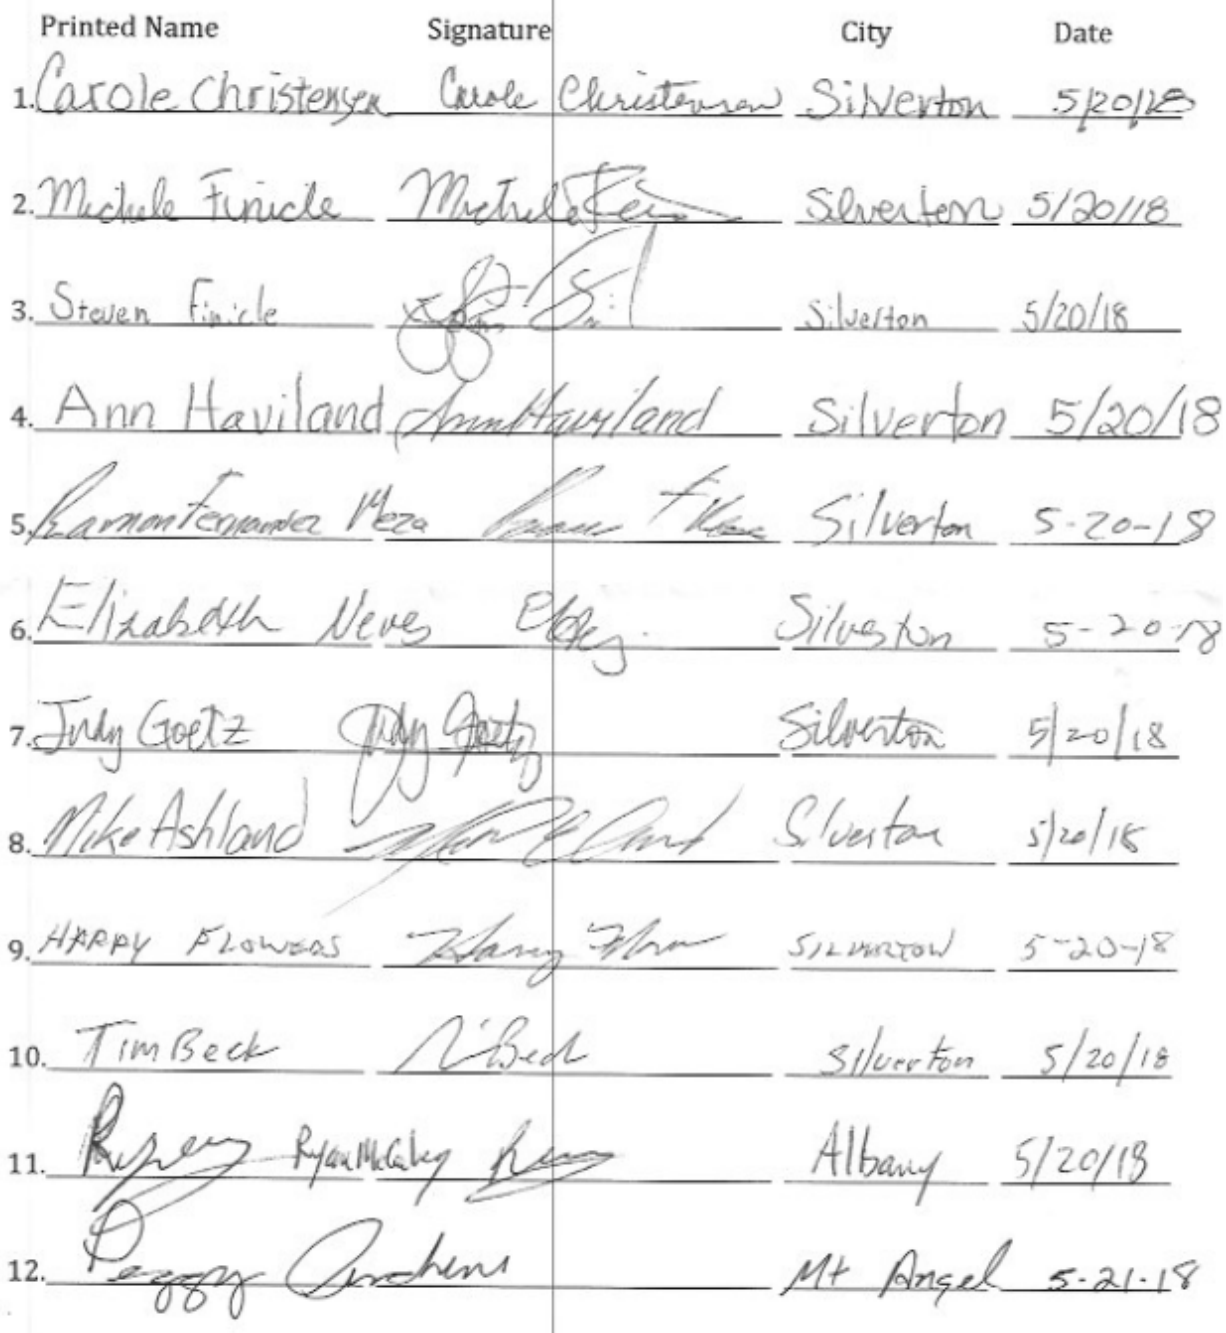 Printed Name Signature City Date
1. Carole Christensen Carole Christensen Silverton 5/20/18
2. Michele Finicle Michele Silverton 5/20/18
3. Steven Finicle Silverton 5/20/18
4. Ann Haviland Ann Haviland Silverton 5/20/18
5. Ramon Fernandez Meza Silverton 5-20-18
6. Elizabeth Neves Silverton 5-20-18
7. Judy Goetz Judy Goetz Silverton 5/20/18
8. Mike Ashland Silverton 5/20/18
9. HARRY FLOWERS Silverton 5-20-18
10. Tim Beck Beck Silverton 5/20/18
11. Ryan Albany 5/20/18
12. Peggy Mt Angel 5-21-18